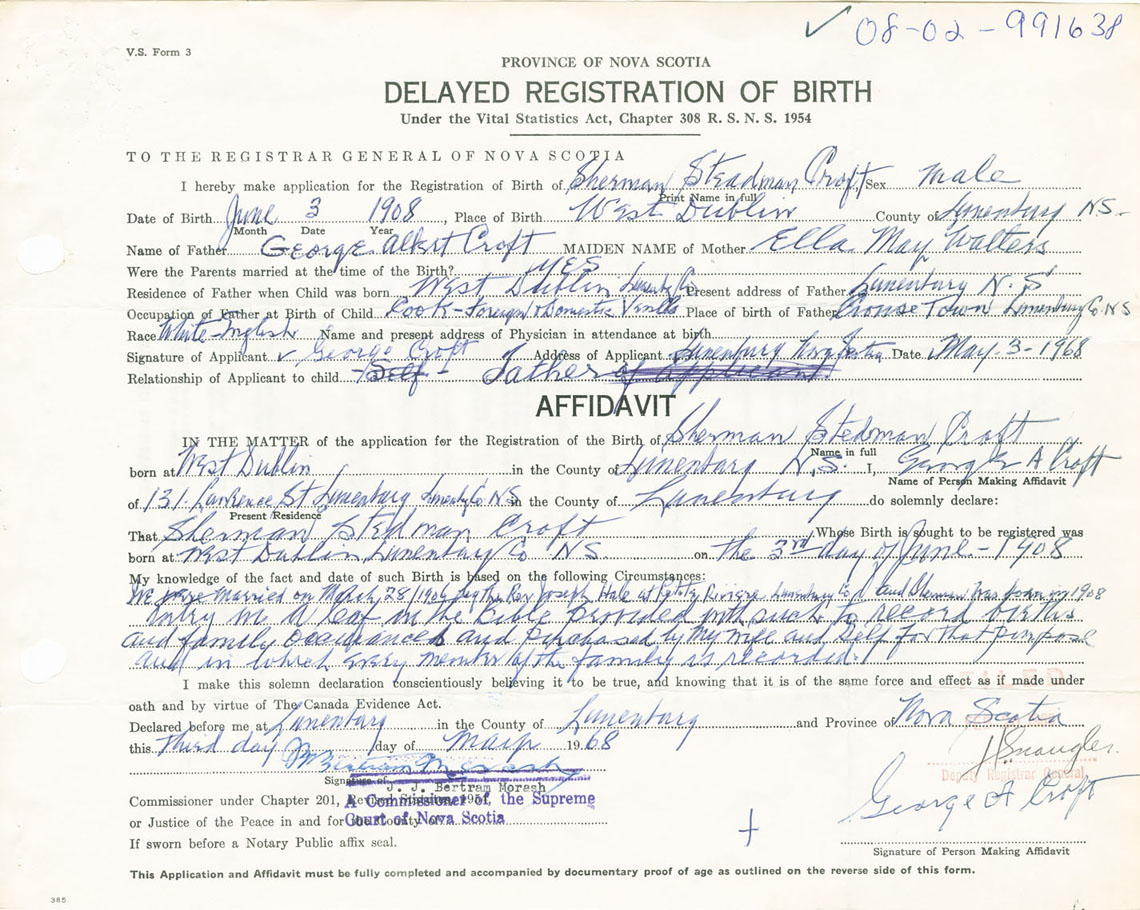 ✓ 08-02-991638
V.S. Form 3
PROVINCE OF NOVA SCOTIA
DELAYED REGISTRATION OF BIRTH
Under the Vital Statistics Act, Chapter 308 R. S. N. S. 1954
TO THE REGISTRAR GENERAL OF NOVA SCOTIA
I hereby make application for the Registration of Birth of Sherman Steadman Croft, Sex male
Print Name in full
Date of Birth June 3 1908, Place of Birth West Dublin County of Lunenburg N.S.
Month Date Year
Name of Father George Albert Croft MAIDEN NAME of Mother Ella May Walters
Were the Parents married at the time of the Birth? YES
Residence of Father when Child was born West Dublin Present address of Father Lunenburg N.S
Occupation of Father at Birth of Child Cook-Foreign & Domestic Place of birth of Father Town Lunenburg Co. N S
Race White-Inglish Name and present address of Physician in attendance at birth
Signature of Applicant George Croft Address of Applicant Lunenburg Date May-3-1968
Relationship of Applicant to child Self - Father of applicant
AFFIDAVIT
IN THE MATTER of the application for the Registration of the Birth of Sherman Stedman Croft
Name in full
born at West Dublin in the County of Lunenburg N.S. I, George A Croft
Name of Person Making Affidavit
of 131 Lawrence St Lunenburg N S in the County of Lunenburg do solemnly declare:
Present Residence
That Sherman Stedman Croft Whose Birth is sought to be registered was
born at West Dublin Lunenburg Co N.S. on the 3rd day of June - 1908
My knowledge of the fact and date of such Birth is based on the following Circumstances:
We were Married on March 28/1906 by the Rev Joseph Hale at Riviere Lunenburg Co and Sherman Was born in 1908
Entry in a leaf in the Bible provided with such to record births
and family and purchased by My wife and Self for that purpose
and in which every member of the family is recorded.
I make this solemn declaration conscientiously believing it to be true, and knowing that it is of the same force and effect as if made under
oath and by virtue of The Canada Evidence Act.
Declared before me at Lunenburg in the County of Lunenburg and Province of Nova Scotia
this third day day of May 1968
Signature of J. J. Bertram Morash
Deputy Registrar General
Commissioner under Chapter 201,
A Commissioner of the Supreme
or Justice of the Peace in and for
Court of Nova Scotia
George A Croft
If sworn before a Notary Public affix seal.
Signature of Person Making Affidavit
This Application and Affidavit must be fully completed and accompanied by documentary proof of age as outlined on the reverse side of this form.
385